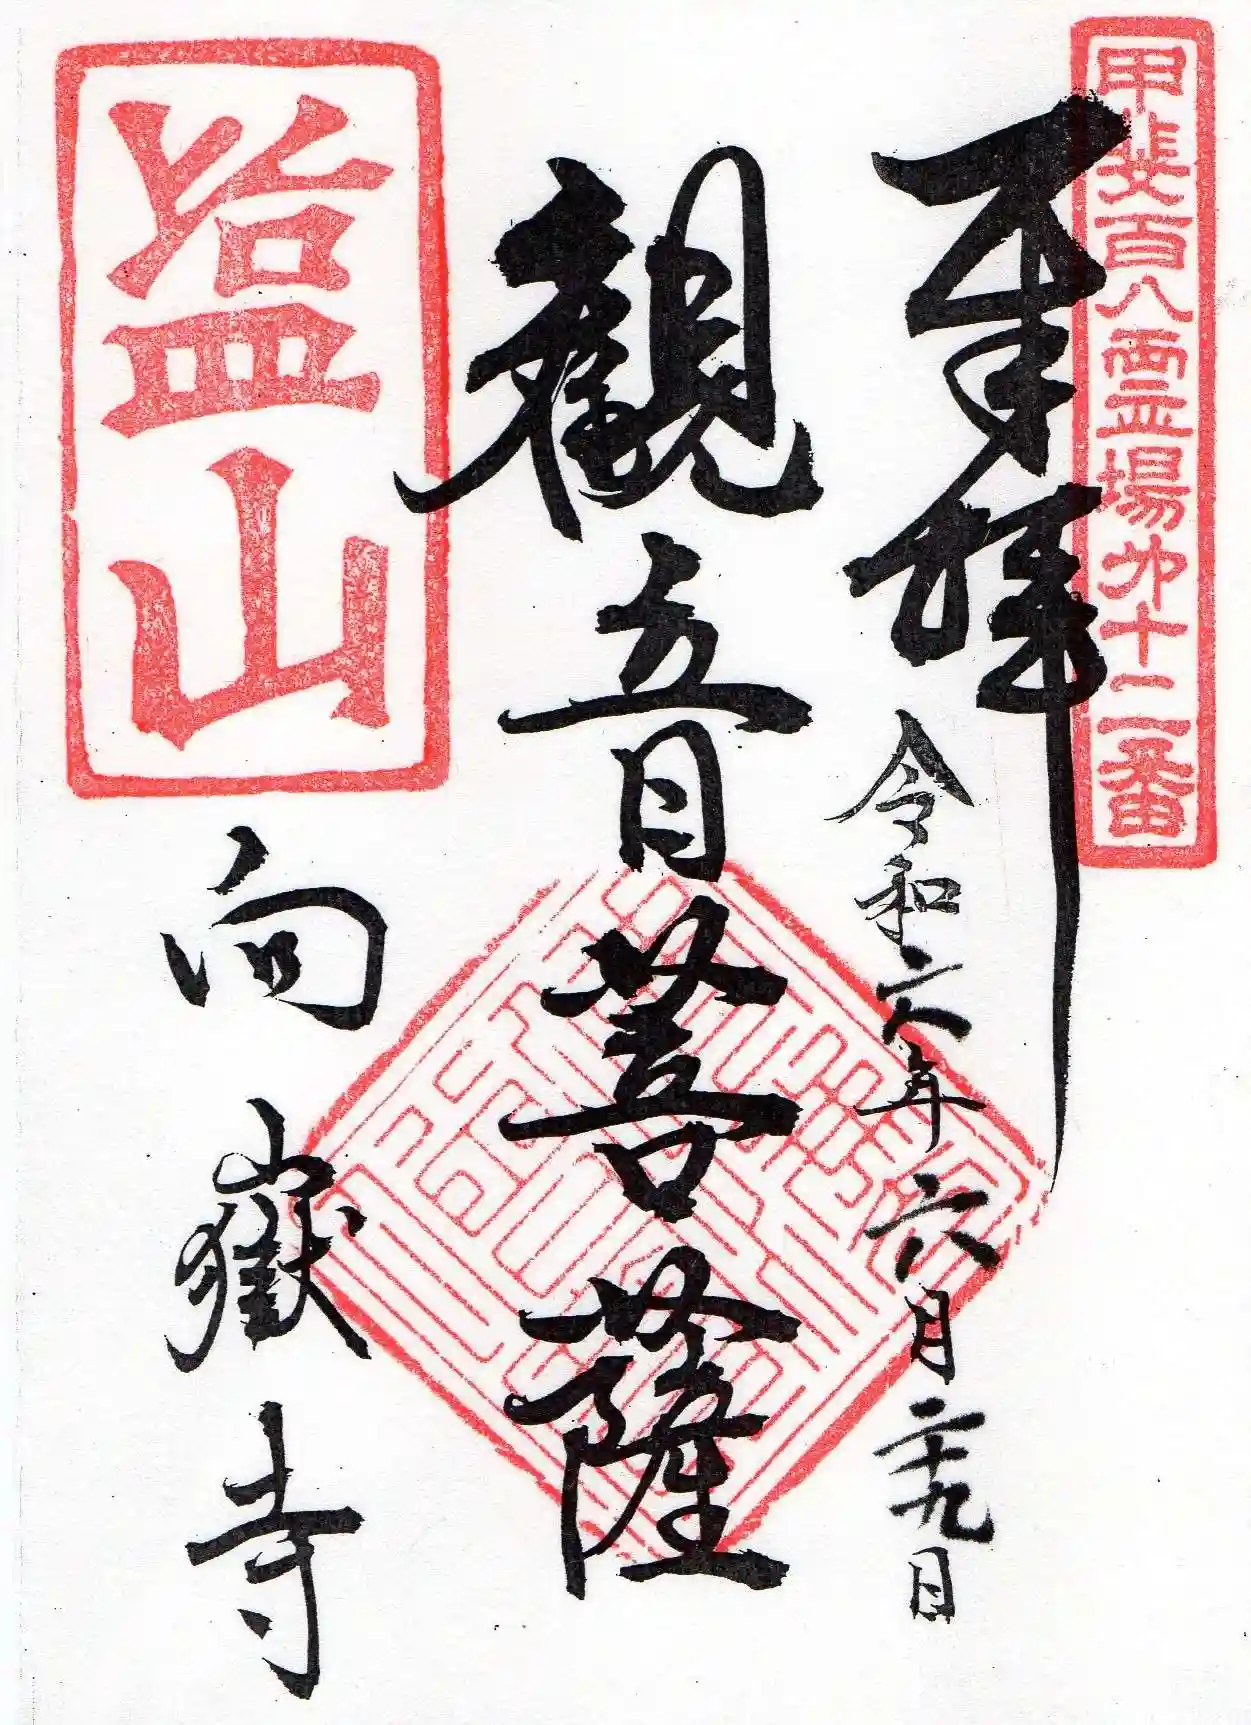 甲斐百八霊場㐧十二番
奉拝
令和六年六月二十九日
觀音菩薩
塩山
向嶽寺